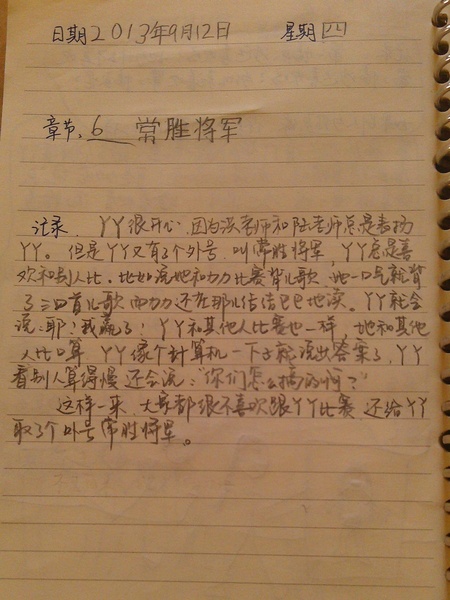 日期2013年9月12日 星期四
章节、6 常胜将军
记录、丫丫很开心,因为洪老师和陆老师总是表扬
丫丫。但是丫丫又有了个外号,叫常胜将军,丫丫总是喜
欢和别人比,比如说她和力力比赛背儿歌,她一口气就背
了三四首儿歌而力力还在那儿结结巴巴地读。丫丫就会
说:耶!我赢了!丫丫和其他人比赛也一样,她和其他
人比口算,丫丫像个计算机一下子就说出答案了,丫丫
看别人算得慢还会说:“你们怎么搞的啊?”
这样一来,大家都很不喜欢跟丫丫比赛,还给丫丫
取了个外号常胜将军。